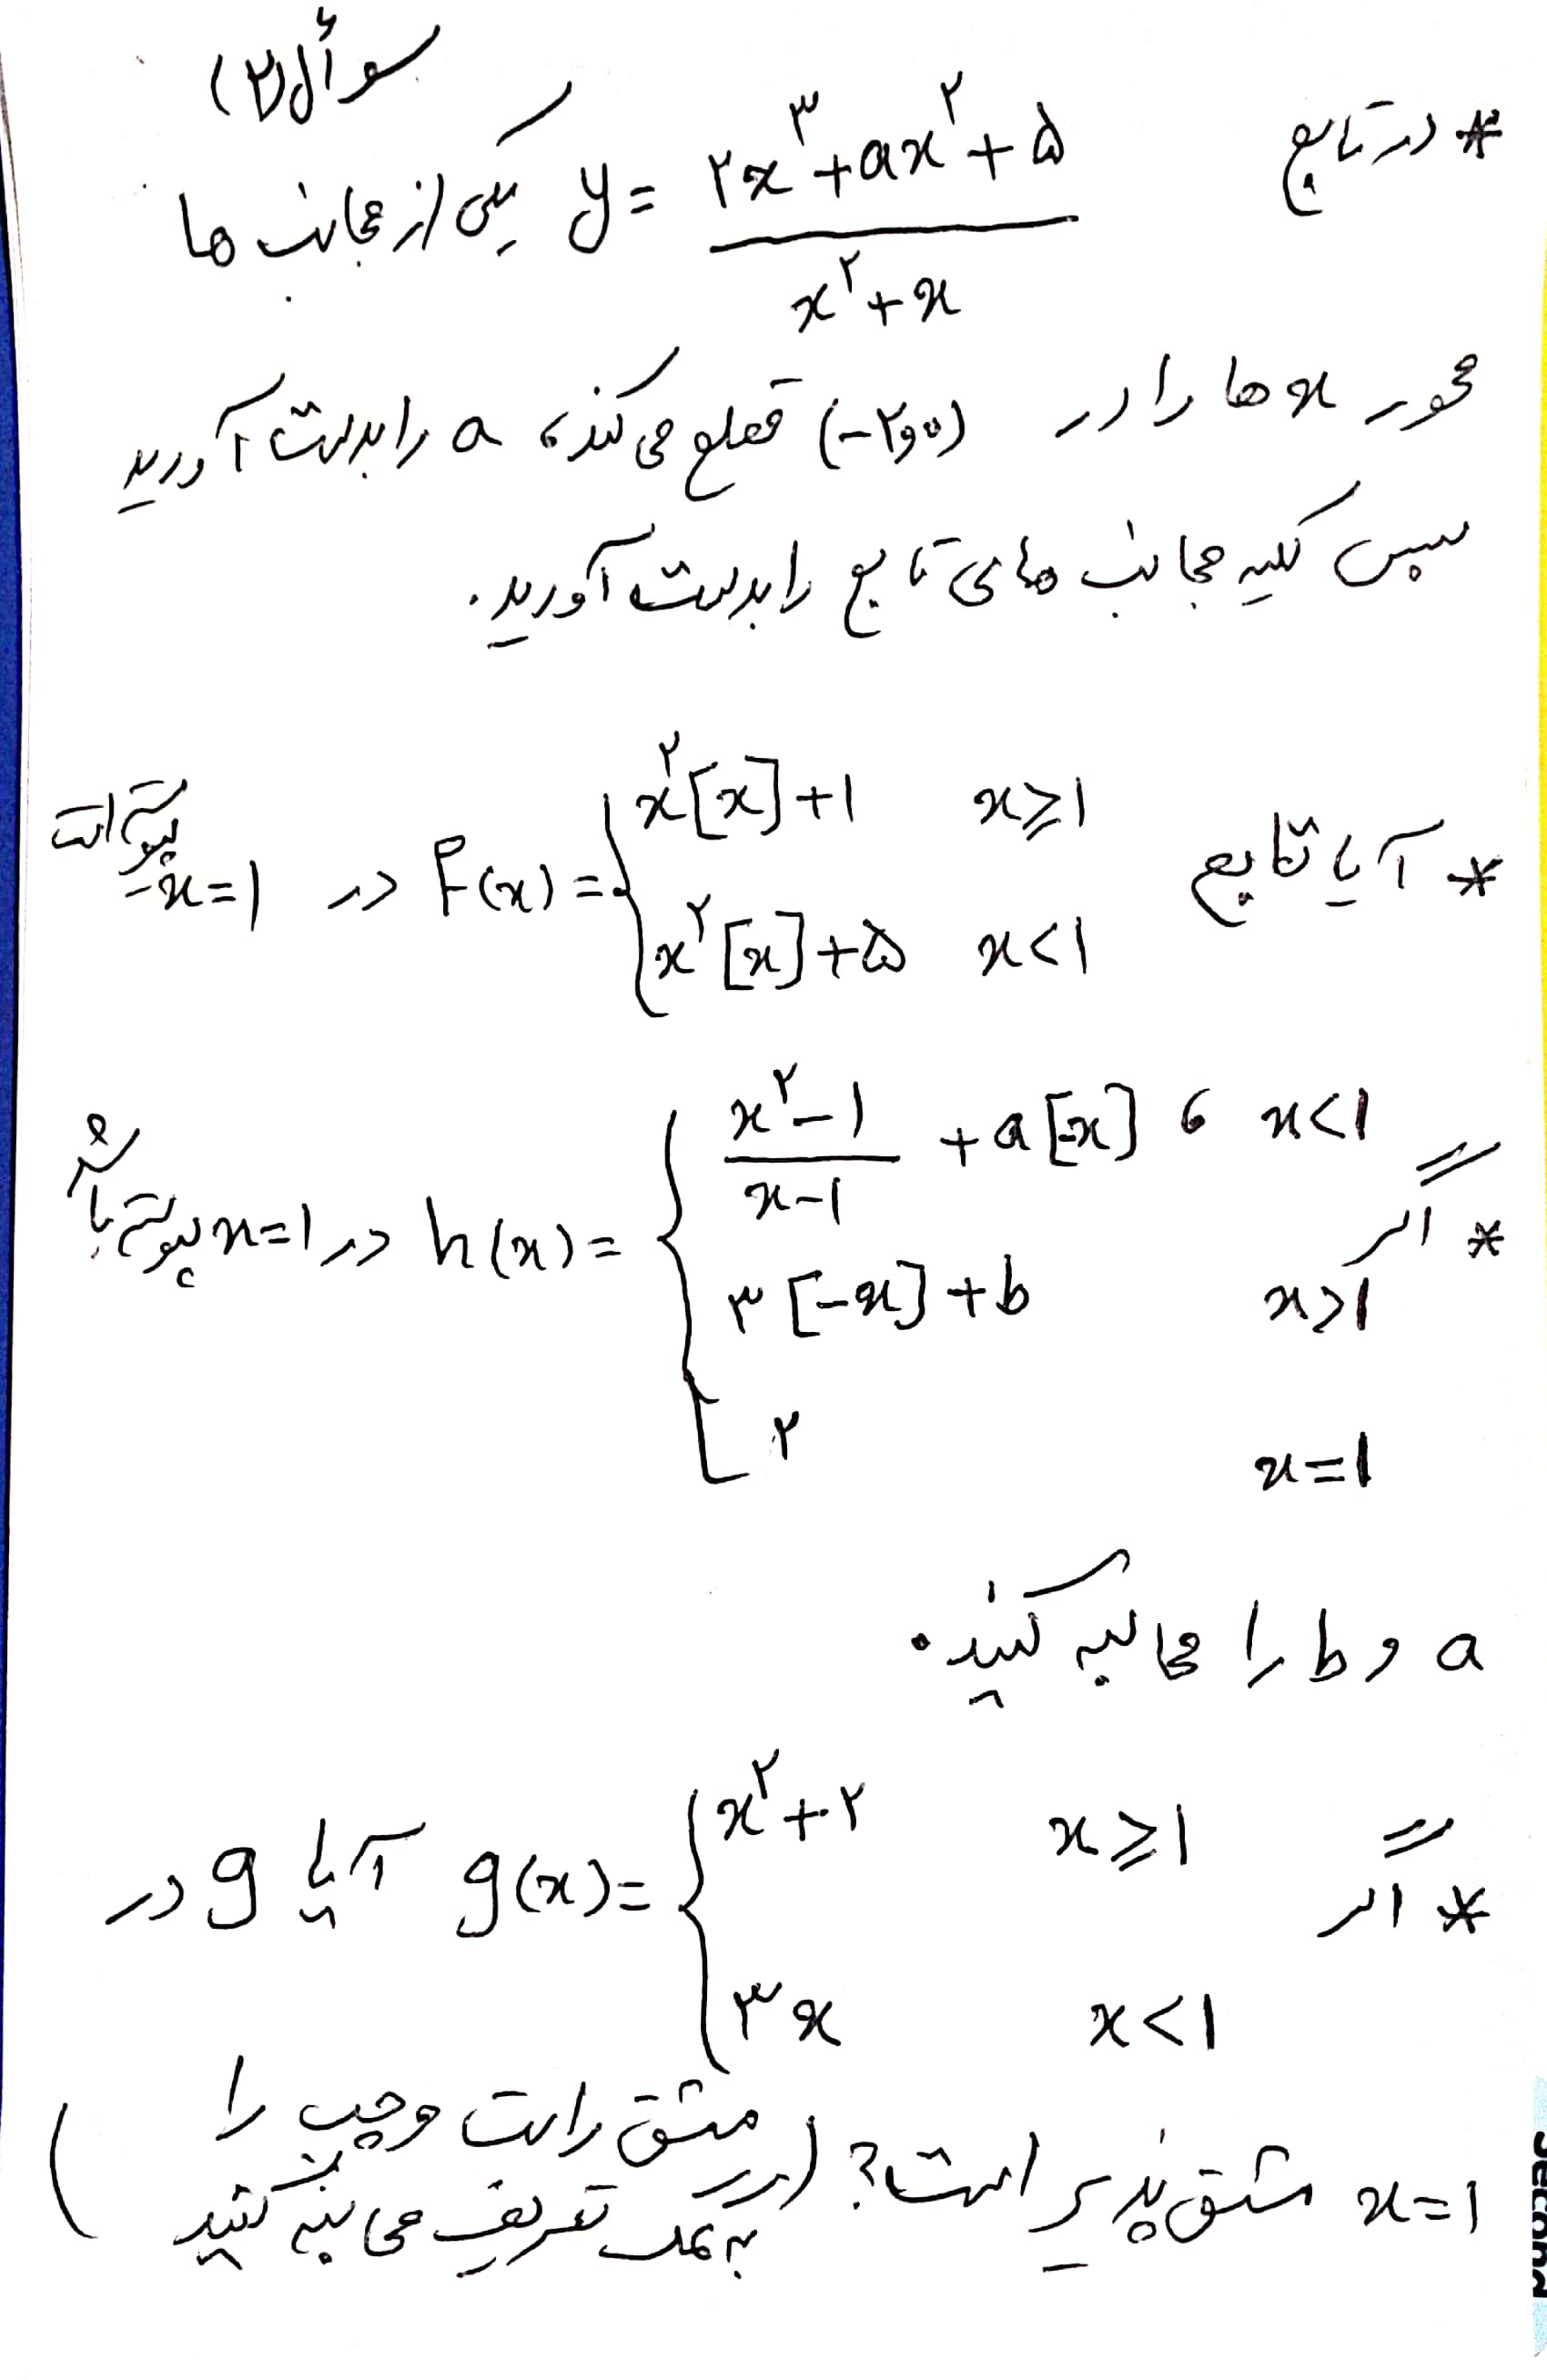 سوأل ۲)
* در تابع y = (۲x^۳ + ax^۲ + ۵) / (x^۲ + x) یکی از مجانب ها
محور x ها را در (-۲,۰) قطع می کند، a را بدست آورید
سپس کلیه مجانب های تابع را بدست آورید.
* آیا تابع F(x) = { x^۲[x] + ۱   x ≥ ۱
x^۲[x] + ۵   x < ۱   در x = ۱ پیوسته است
* اگر h(x) = { (x^۲ - ۱) / (x - ۱) + a[-x] ،   x < ۱
۳[-x] + b   x > ۱
۲   x = ۱   در x = ۱ پیوسته باشد
a و b را محاسبه کنید.
* اگر g(x) = { x^۲ + ۲   x ≥ ۱
۳x   x < ۱   آیا g در
x = ۱ مشتق پذیر است؟ (مشتق راست و چپ را
به کمک تعریف محاسبه کنید)